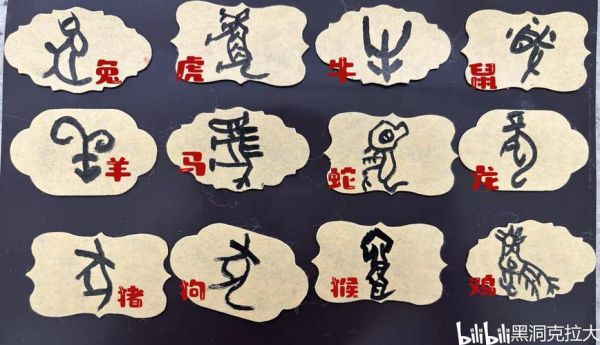 兔 虎 牛 鼠
羊 马 蛇 龙
猪 狗 猴 鸡
bilibili 黑洞克拉大